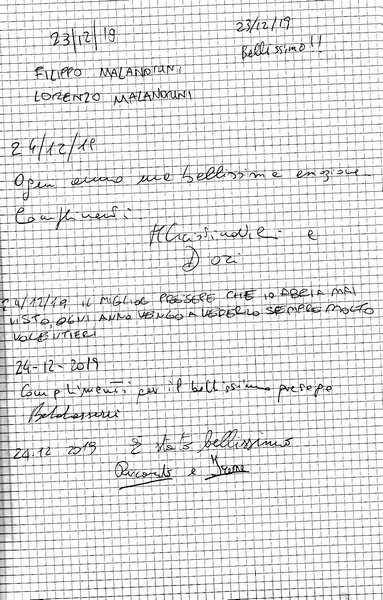 23/12/19
FILIPPO MALANDRINI
LORENZO MALANDRINI
23/12/19
Bellissimo!!
24/12/19
Ogni anno una bellissima emozione
Complimenti.
e
24/12/19 IL MIGLIOR PRESEPE CHE IO ABBIA MAI
VISTO, OGNI ANNO VENGO A VEDERLO SEMPRE MOLTO
VOLENTIERI
24-12-2019
Complimenti per il bellissimo presepe
Baldasserri
24.12 2019 È stato bellissimo
Riccardo e Irene